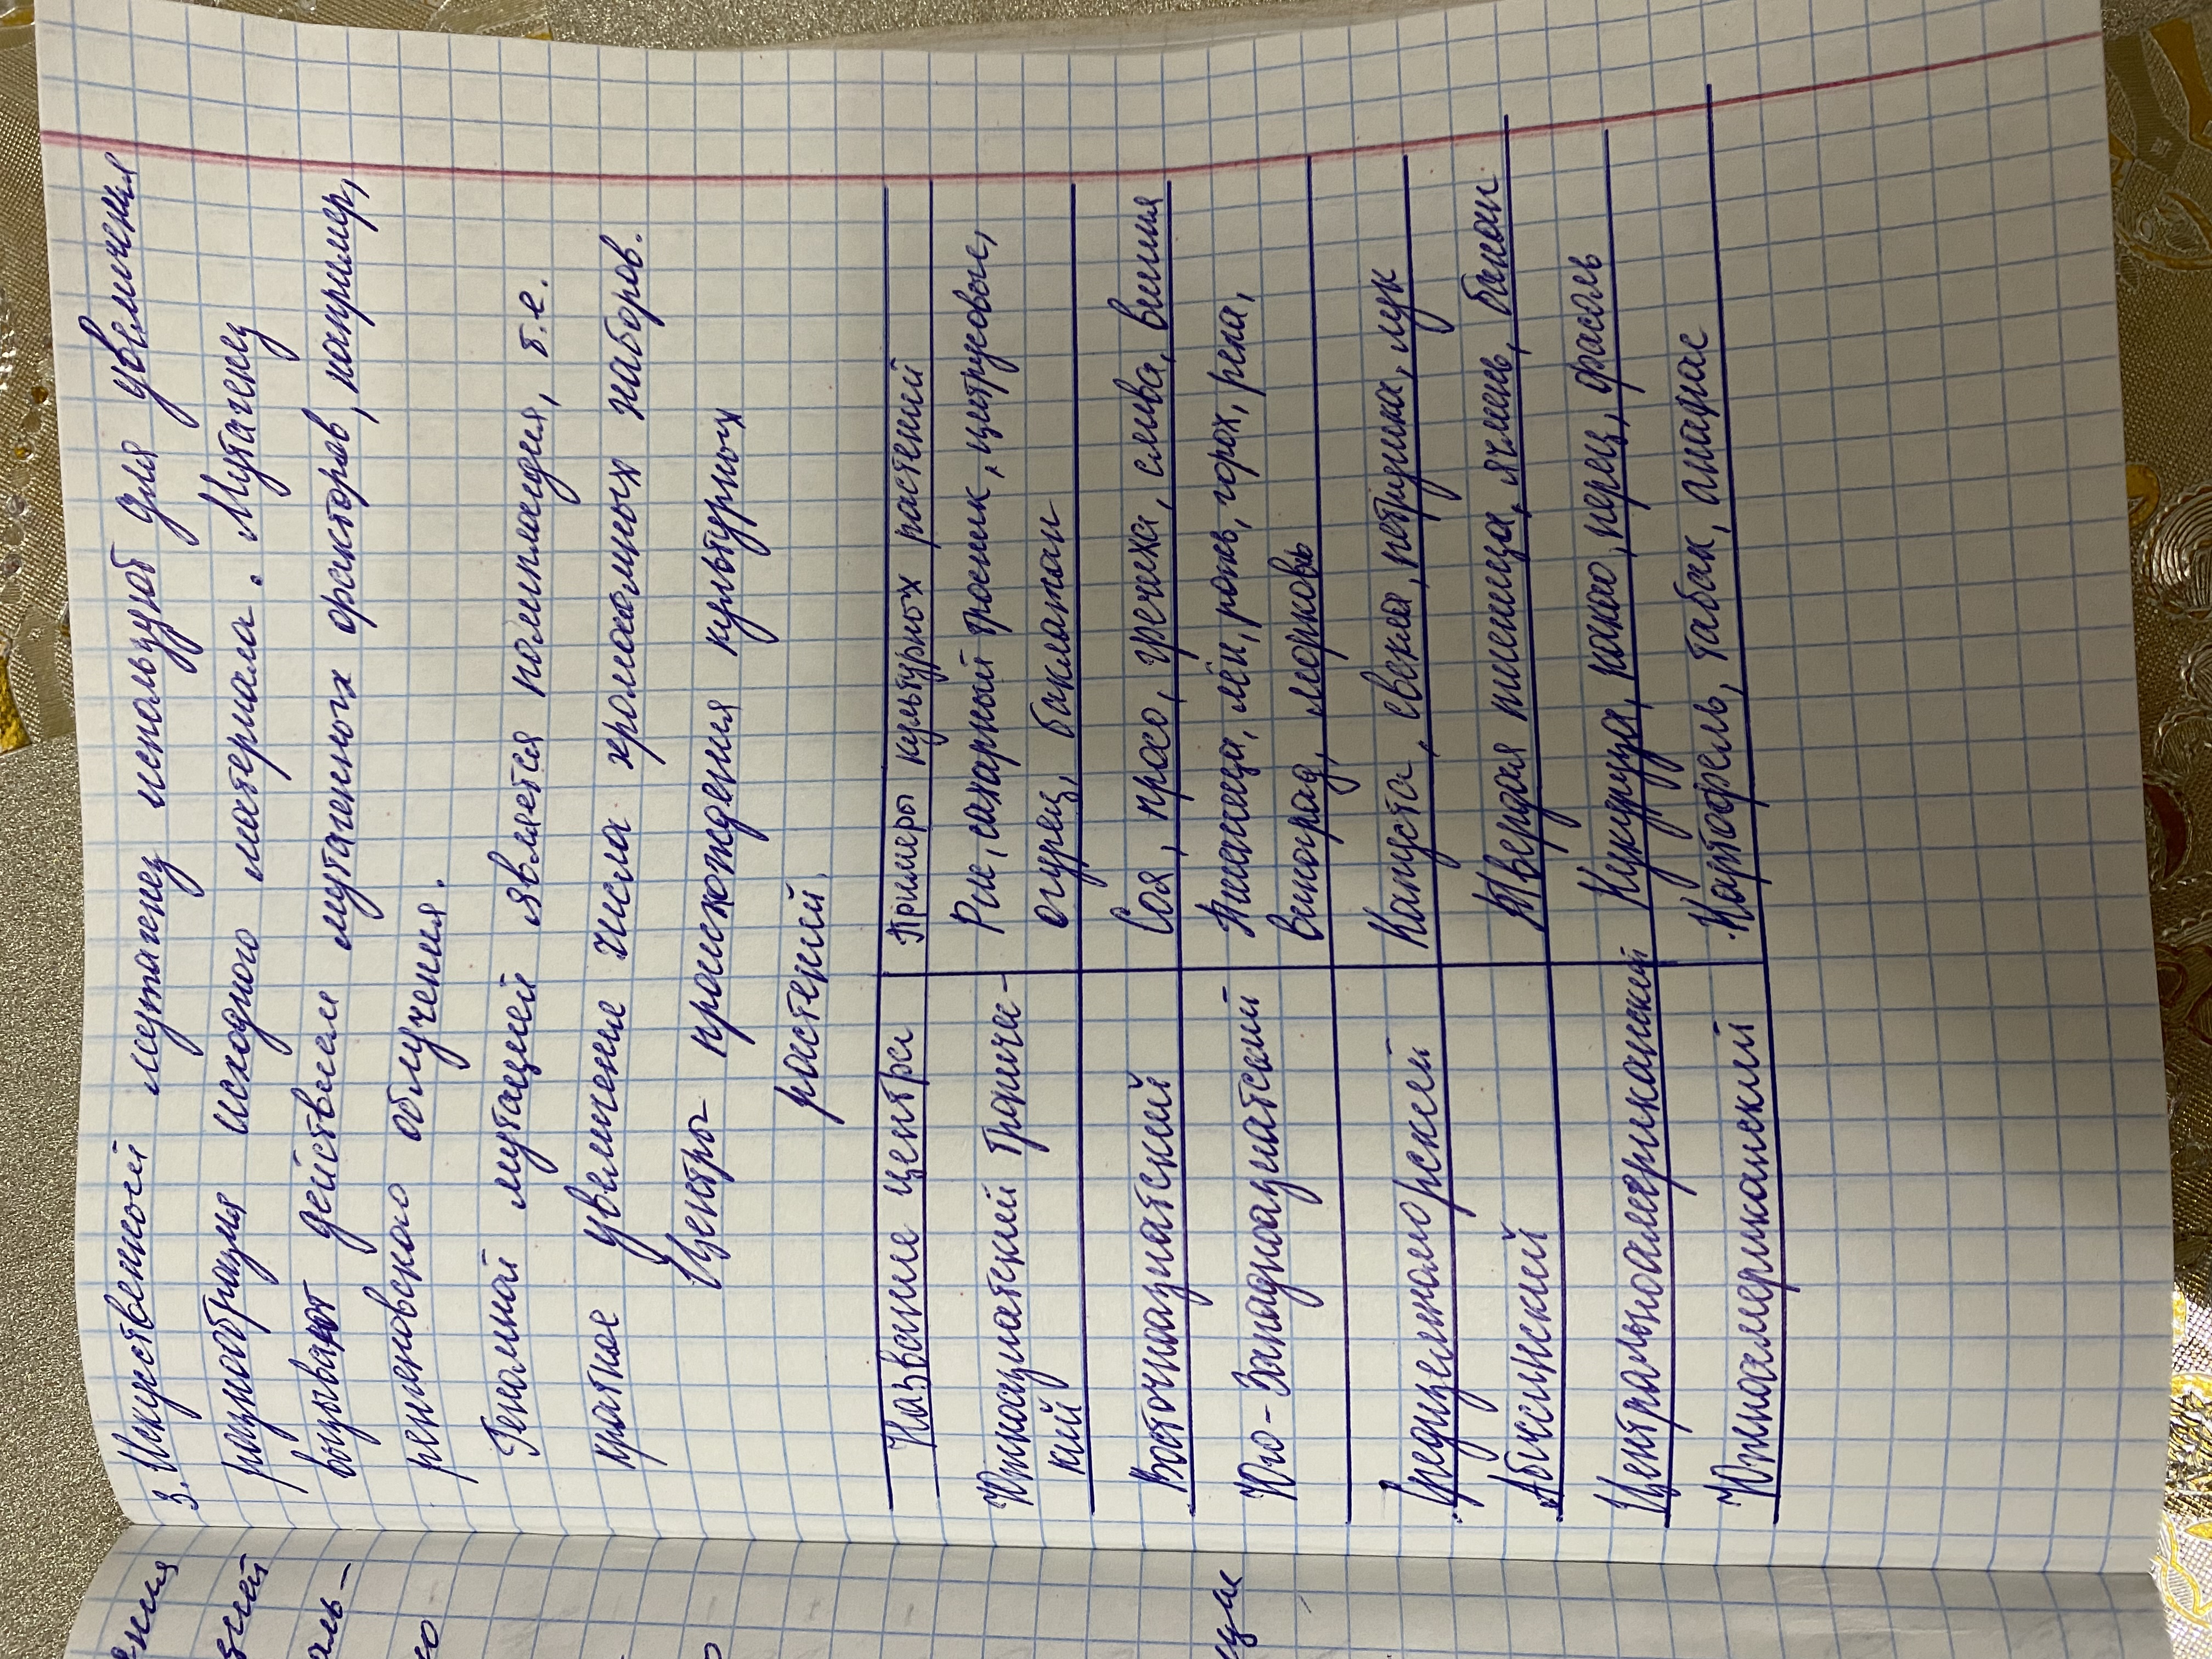 3. Искуственный мутагнез используют для увеличения
разнообразия исходного материала. Мутагенез
вызывают действием мутагенных факторов, например,
ренгеновского облучения.
Геномной мутацией является полиплоидия, т.е.
кратное увеличение числа хромосомных наборов.
Центры происхождения культурных
растений.
Название центра Примеры культурных растений
Южноазиатский тропиче- Рис, сахарный тросник, цитрусовые,
кий огурец, баклажан
Восточноазиатский Соя, просо, гречиха, слива, вишня
Юго-Западноазиатский Пшеница, лён, рожь, горох, репа,
виноград, морковь
Средиземноморский Капуста, свекла, петрушка, лук
Абиссинский Твердая пшеница, ячмень, банан
Центральноамериканский Кукуруза, какао, перец, фасоль
Южноамериканский Картофель, табак, ананас
ения
цией
аль-
о